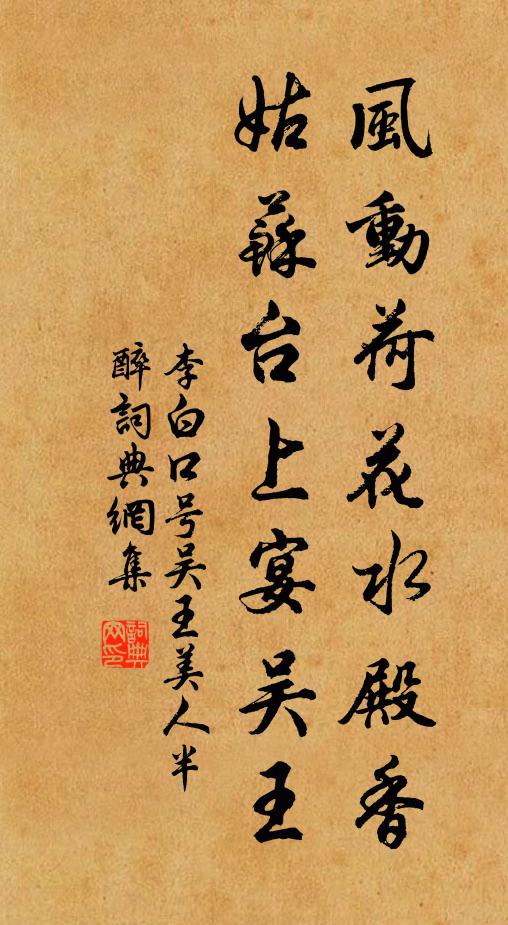 風動荷花水殿香
姑蘇台上宴吴王
李白口号吴王美人半
醉詞典網集
詞典
网印